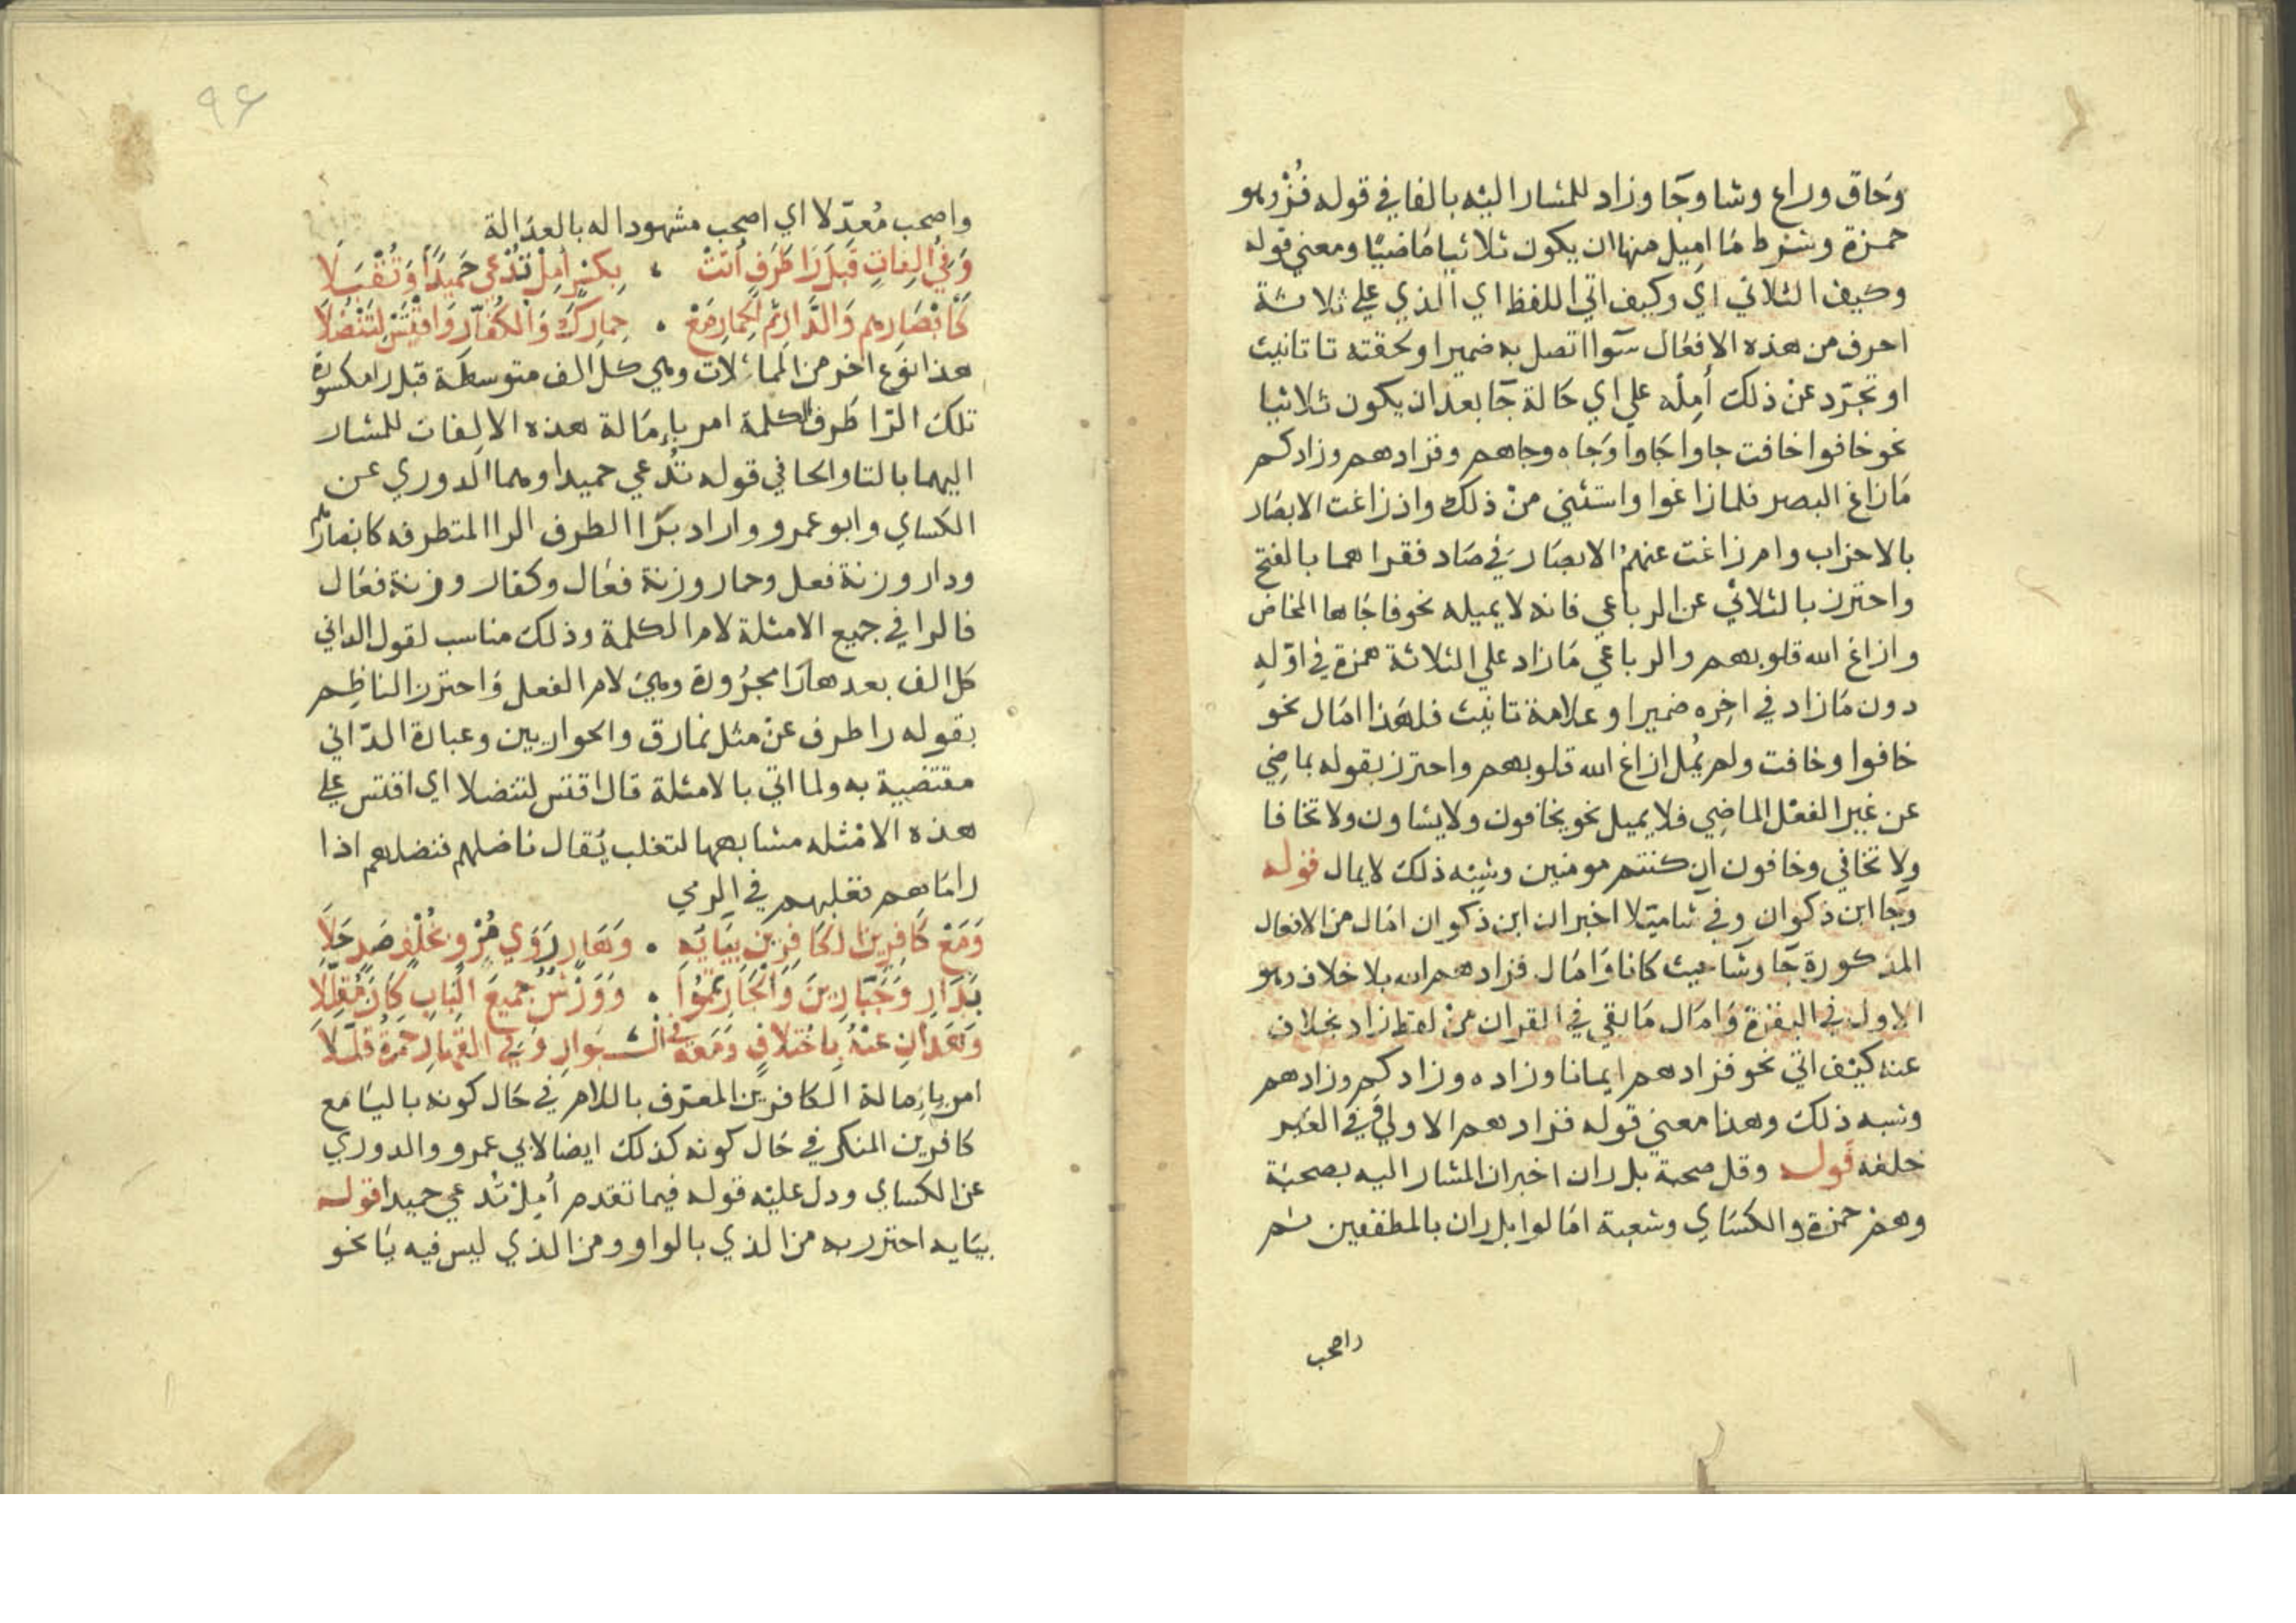 وحاق وراغ وشا وجا وزاد للمشار اليه بالفا في قوله فز وهو
حمزة وشرط ما اميل منها ان يكون ثلاثيا ماضيا ومعني قوله
وكيف الثلاثي اي وكيف اتي اللفظ اي الذي علي ثلاثة
احرف من هذه الافعال سوا اتصل به ضمير او لحقته تا تانيث
او تجرد عن ذلك أمله علي اي حالة جا بعد ان يكون ثلاثيا
نحو خافوا خافت جاوا جاوا وجاه وجاهم وفزادهم وزادكم
ما زاغ البصر فلما زاغوا واستثني من ذلك واذ زاغت الابصار
بالاحزاب وام زاغت عنهم الابصار في صاد فقراهما بالفتح
واحترز بالثلاثي عن الرباعي فانه لا يميله نحو فاجاها المخاض
وازاغ الله قلوبهم والرباعي ما زاد علي الثلاثة همزة في اوله
دون ما زاد في اخره ضمير او علامة تانيث فلهذا امال نحو
خافوا وخافت ولم يمل ازاغ الله قلوبهم واحترز بقوله بماضي
عن غير الفعل الماضي فلا يميل نحو يخافون ولا يشاون ولا تخافا
ولا تخافي وخافون ان كنتم مومنين وشبه ذلك لا يمال قوله
وجا ابن ذكوان وفي شا ميلا اخبر ان ابن ذكوان امال من الافعال
المذكورة جا وشا حيث كانا وامال فزادهم الله بلا خلاف وهو
الاول في البقرة وامال ما بقي في القران من لفظ زاد بخلاف
عنه كيف اتي نحو فزادهم ايمانا وزاده وزادكم وزادهم
وشبه ذلك وهذا معني قوله فزادهم الاولي وفي الغير
خلفه قوله وقل صحبة بل ران اخبر ان المشار اليه بصحبة
وهم حمزة والكساي وشعبة امالوا بل ران بالمطففين ثم
واصحب
٩٤
واصحب معدلا اي اصحب مشهودا له بالعدالة
وَفي الفاتٍ قبل را طرفٍ أتت ، بكسرٍ أمل تُدعى حميدًا وتُقبلا
كأبصارهم والدار ثم الحمار مع ، حمارك والكفار واقتس لتنضلا
هذا نوع اخر من الممالات وهي كل الف متوسطة قبل را مكسورة
تلك الرا طرف الكلمة امر بإمالة هذه الالفات للمشار
اليهما بالتا والحا في قوله تُدعي حميدا وهما الدوري عن
الكساي وابو عمرو واراد بَرا الطرف الرا المتطرفه كابصارهم
ودار وزنة فعل وحمار وزنة فعال وكفار وزنة فعال
فالرا في جميع الامثلة لام الكلمة وذلك مناسب لقول الداني
كل الف بعدها را مجرورة وهي لام الفعل واحترز الناظم
بقوله را طرف عن مثل نمارق والحواريين وعبارة الداني
مقتضية به ولما اتي بالامثلة قال اقتس لتنضلا اي اقتس علي
هذه الامثله مشابهها لتغلب يقال ناضلهم فنضلهم اذا
راماهم فغلبهم في الرمي
وَمَع كافرين الكافرين بيايه ، وهار روى مُرْوٍ بخُلف صدٍ حلا
بدار وجبارين والجار تمموا ، وورش جميع الباب كان مقللا
وهذان عنه باختلاف ومعه في البوار وفي القهار حمزة قللا
امر بإمالة الكافرين المعرف باللام في حال كونه باليا مع
كافرين المنكر في حال كونه كذلك ايضا لابي عمرو والدوري
عن الكساي ودل عليه قوله فيما تقدم أمل تُدعي حميدا قوله
بيايه احترز به من الذي بالواو ومن الذي ليس فيه يا نحو